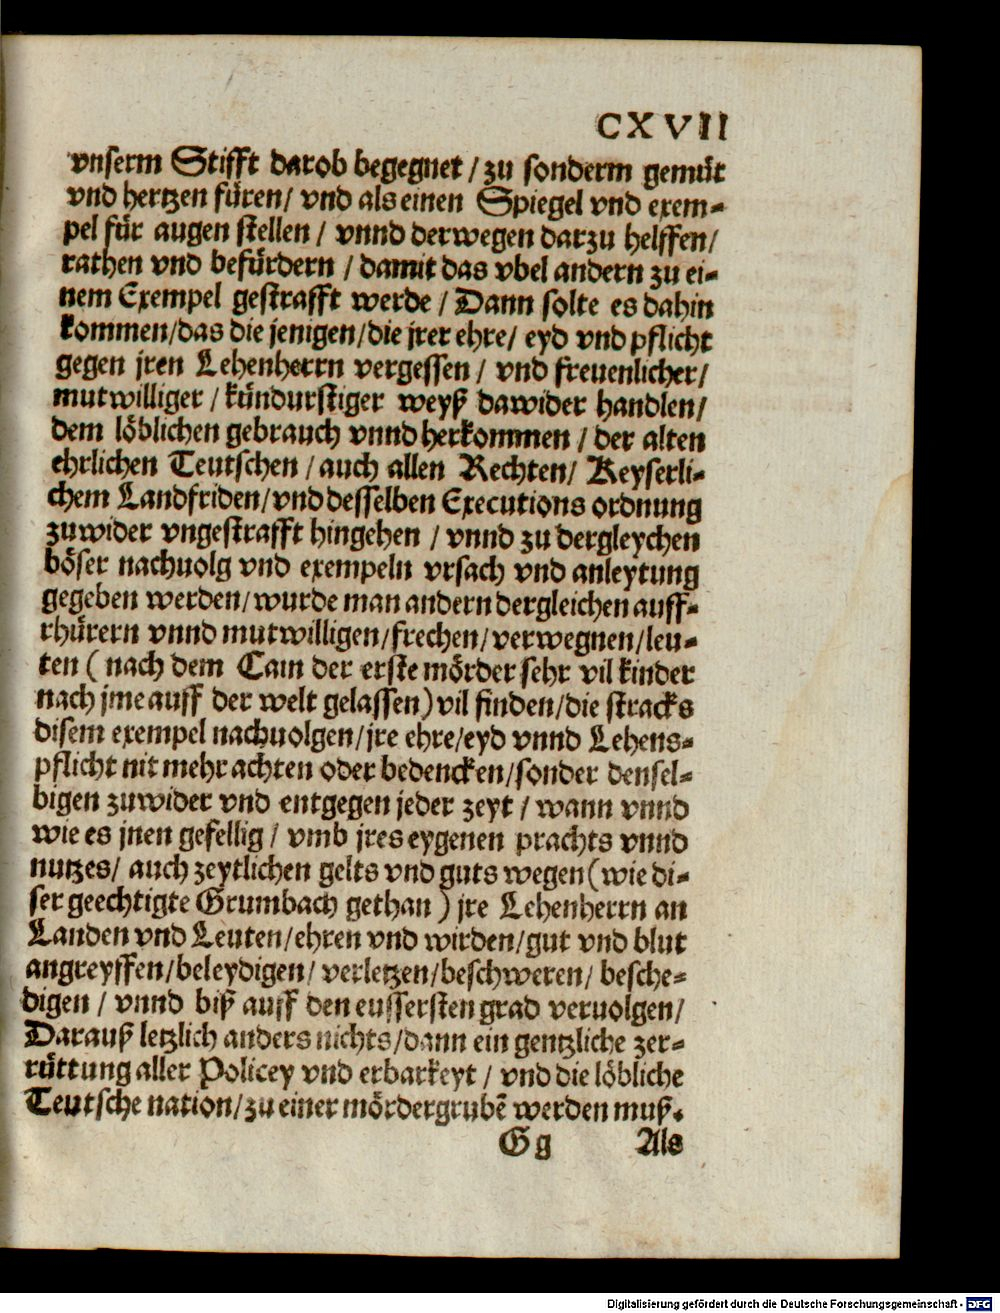 CXVII
vnserm Stifft darob begegnet / zu sonderm gemüt
vnd hertzen füren / vnd als einen Spiegel vnd exem-
pel für augen stellen / vnnd derwegen darzu helffen /
rathen vnd befürdern / damit das vbel andern zu ei-
nem Exempel gestrafft werde / Dann solte es dahin
kommen / das die jenigen / die jrer ehre / eyd vnd pflicht
gegen jren Lehenherrn vergessen / vnd freuenlicher /
mutwilliger / kündurstiger weyß dawider handlen /
dem löblichen gebrauch vnnd herkommen / der alten
ehrlichen Teutschen / auch allen Rechten / Keyserli-
chem Landfriden / vnd desselben Executions ordnung
zuwider vngestrafft hingehen / vnnd zu dergleychen
böser nachuolg vnd exempeln vrsach vnd anleytung
gegeben werden / wurde man andern dergleichen auff-
rhürern vnnd mutwilligen / frechen / verwegnen / leu-
ten ( nach dem Cain der erste mörder sehr vil kinder
nach jme auff der welt gelassen ) vil finden / die stracks
disem exempel nachuolgen / jre ehre / eyd vnnd Lehens-
pflicht nit mehr achten oder bedencken / sonder densel-
bigen zuwider vnd entgegen jeder zeyt / wann vnnd
wie es jnen gefellig / vmb jres eygenen prachts vnnd
nutzes / auch zeytlichen gelts vnd guts wegen ( wie di-
ser geechtigte Grumbach gethan ) jre Lehenherrn an
Landen vnd Leuten / ehren vnd wirden / gut vnd blut
angreyffen / beleydigen / verletzen / beschweren / besche-
digen / vnnd biß auff den eussersten grad veruolgen /
Darauß letzlich anders nichts / dann ein gentzliche zer-
rüttung aller Policey vnd erbarkeyt / vnd die löbliche
Teutsche nation / zu einer mördergrubē werden muß.
Gg Als
Digitalisierung gefördert durch die Deutsche Forschungsgemeinschaft - DFG